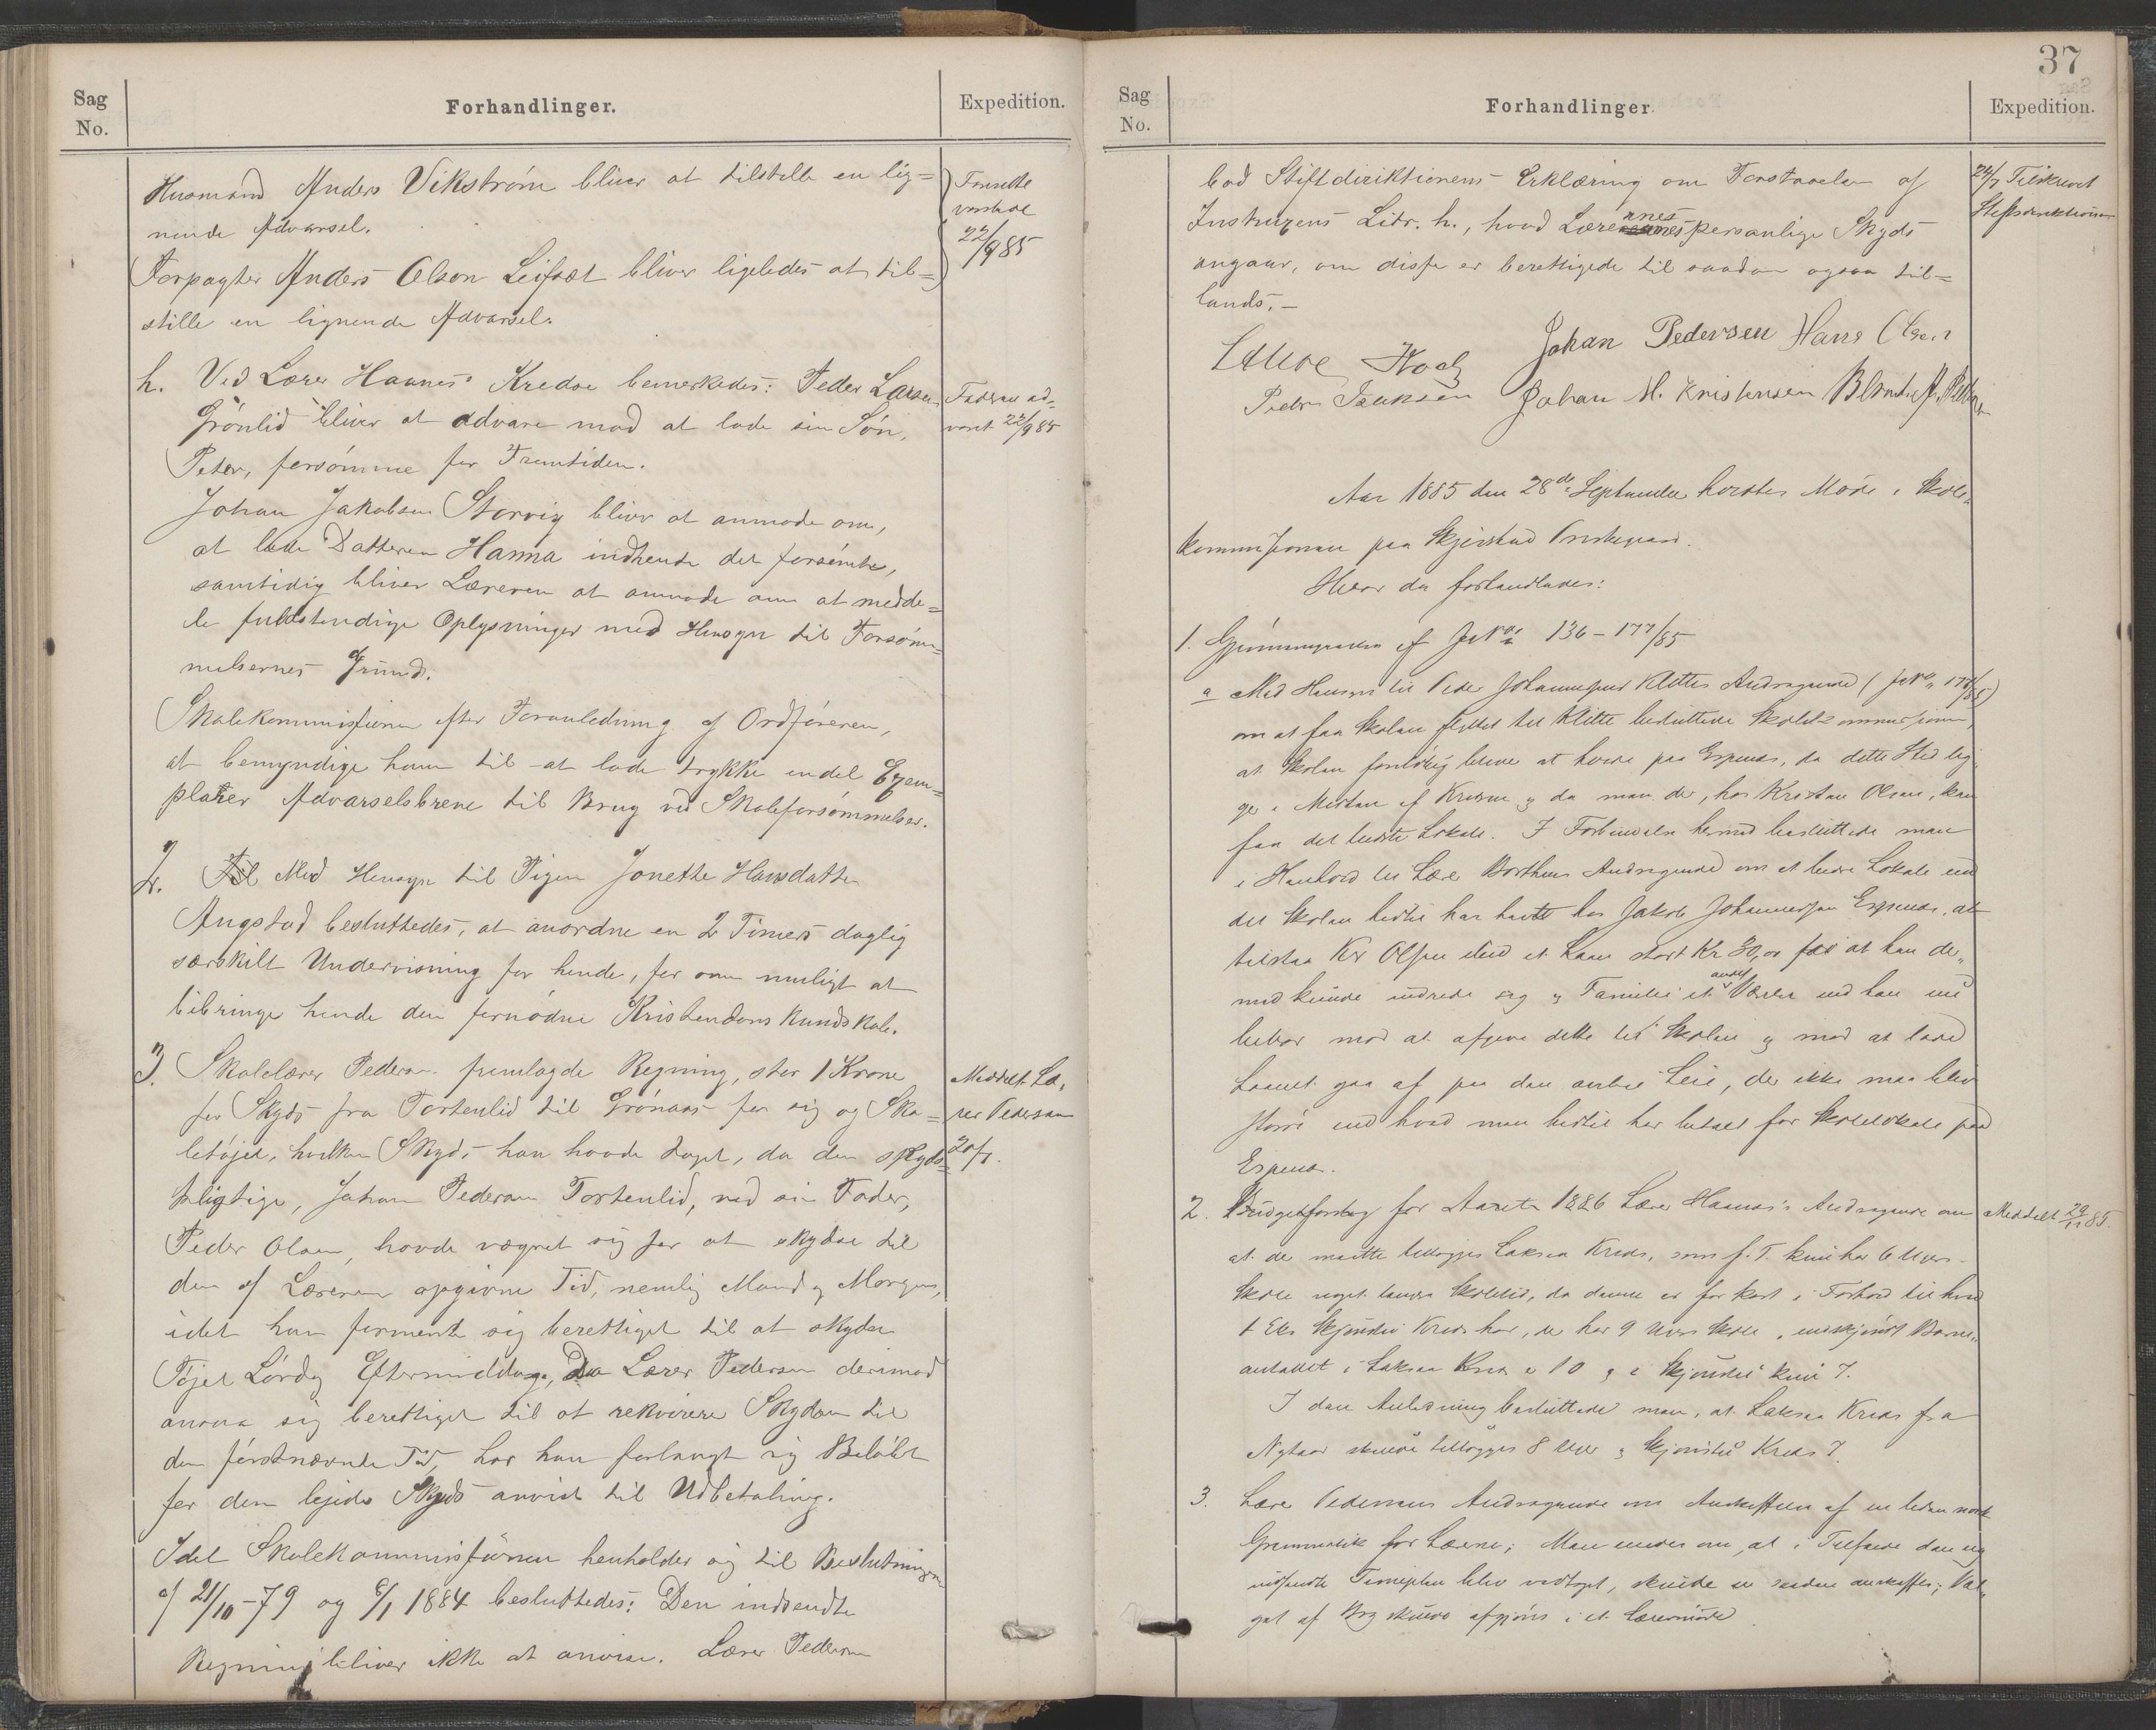 Sag No.
Forhandlinger.
Expedition.
Husmand Anders Vikstrøm bliver at tilstille en lig=
nende Advarsel.
Forpagter Anders Olsen Leifset bliver ligeledes at til=
stille en lignende Advarsel.
22/9 85
h. Ved Lærer Haanes' Kredse bemerkedes: Peder Larsen
Grønlid bliver at advare mod at lade sin Søn,
Peter, forsømme for Fremtiden.
Faderen ad=
varet 22/9 85
Johan Jakobsen Storvig bliver at anmode om,
at lade Datteren Hanna indhente det forsømte,
samtidig bliver Læreren at anmode om at medde=
le fuldstændige Oplysninger med Hensyn til Forsøm=
melsernes Grund.
Skolekommissionen efter Foranledning af Ordføreren,
at bemyndige ham til at lade trykke endel Exem=
plarer Advarselsbreve til Brug ved Skoleforsømmelser.
2. Med Hensyn til Pigen Jonette Hansdatter
Augstad besluttedes, at anordne en 2 Timers daglig
særskilt Undervisning for hende, for om muligt at
bibringe hende den fornødne Kristendoms Kundskab.
3. Skolelærer Pedersen fremlagde Regning, stor 1 Krone
for Skyds fra Tortenlid til Grønaas for sig og Sko=
letøjet, hvilken Skyds han havde taget, da den skyds=
pligtige, Johan Pedersen Tortenlid, ved sin Fader,
Peder Olsen, havde vægret sig for at skydse til
den af Læreren opgivne Tid, nemlig Mandag Morgen,
idet han formente sig berettiget til at skydse
Tøjet Lørdag Eftermiddag. Da Lærer Pedersen derimod
ansaa sig berettiget til at rekvirere Skydsen til
den førstnævnte Tid, har han forlangt sig Beløbet
for den lejede Skyds anvist til Udbetaling.
Meddelt Læ=
rer Pedersen
20/9.
Idet Skolekommissionen henholder sig til Beslutningerne
af 21/10 - 79 og 8/1 1884 besluttedes: Den indsendte
Regning bliver ikke at anvise. Lærer Pedersen
37
Sag No.
Forhandlinger.
Expedition.
bad Stiftdirektionens Erklæring om Forstaaelsen af
Instruxens Litr. h., hvad Lærernes personlige Skyds
angaar, om disse er berettigede til saadan ogsaa til=
lands. —
24/9 Tilskrevet
Stiftsdirektionen
Koch Johan Pedersen Hans Olsen
Peder Isaksen Johan M. Kristensen
Aar 1885 den 28de September holdtes Møde i Skole=
kommissionen paa Skjerstad Prestegaard.
Hvor da forhandledes:
1. Gjennemgaaelse af JNo 136 - 177/85
a Med Hensyn til Peder Johannesens Klettes Andragende (JNo 177/85)
om at faa Skolen flyttet til Klette besluttede Skolekommissionen,
at Skolen foreløbig bliver at holde paa Espenes, da dette Sted lig=
ger i Midten af Kredsen og da man der, hos Kristian Olsen, kan
faa det bedste Lokale. I Forbindelse hermed besluttede man
i Henhold til Lærer Borthens Andragende om et bedre Lokale end
det Skolen hidtil har havt hos Jakob Johannessen Espenes, at
tilstaa Kr Olsen sted et Laan stort Kr 30,00 for at han der=
med kunde indrede sig og Familie et andet Værelse end han nu
bebor mod at afgive dette til Skolen og mod at lade
Laanet gaa af paa den aarlige Leie, der ikke maa blive
større end hvad man hidtil har betalt for Skolelokale paa
Espenes.
2. Budgetforslag for Aaret 1886 Lærer Haanes's Andragende om
at der maatte tillægges Laksaa Kreds, som f. T. kun har 6 Ugers
Skole noget længre Skoletid, da denne er for kort i Forhold til hvad
t Eks Skjønstu Kreds har, der har 9 Ugers Skole, uagtet Børne=
antallet i Laksaa Kreds er 10 og i Skjønstu kun 7.
I den Anledning besluttede man, at Laksaa Kreds fra
Nytaar skulde tillægges 8 Uger og Skjønstu Kreds 7.
Meddelt 29/11 85.
3. Lærer Pedersens Andragende om Anskaffelse af en liden norsk
Grammatik for Lærerne; Man enedes om, at i Tilfælde den ny
indsendte Timeplan blev vedtaget, skulde en saadan anskaffes; Val=
get af Bog skulde afgjøres i et Lærermøde